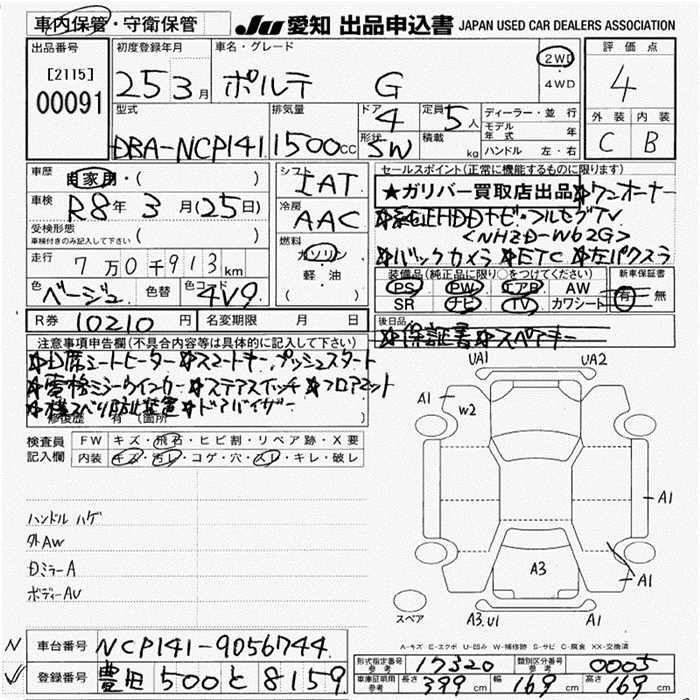 車内保管・守衛保管
JU 愛知 出品申込書 JAPAN USED CAR DEALERS ASSOCIATION
出品番号
[2115]
00091
初度登録年月
25 3月
車名・グレード
ポルテ G
2WD
4WD
評価点
4
外装 内装
C B
型式
DBA-NCP141
排気量
1500cc
ドア
4
形状
5W
定員
5人
積載
kg
ディーラー・並行
モデル年式 年
ハンドル 左・右
車歴
自家用・( )
車検
R8年 3月(25日)
受検形態
車検付きのみ記入して下さい ( )
走行
7万0千913km
色
ベージュ
色替
色コード
4V9
シフト
IAT
冷房
AAC
燃料
ガソリン
軽・油
( )
セールスポイント(正常に機能するものに限ります)
★ガリバー買取店出品☆ワンオーナー
☆純正HDDナビ・フルセグTV
<NHZD-W62G>
☆バックカメラ☆ETC☆左パワスラ
装備品(純正品に限り○をつけてください)
PS PW エアB AW
SR ナビ TV カワシート
新車保証書
有・無
後日品
☆保証書☆スペアキー
R券 10210円
名変期限 月 日
注意事項申告欄(不具合内容等は具体的に記入して下さい)
☆D席シートヒーター☆スマートキー,プッシュスタート
☆電格ミラーウインカー☆ステアスイッチ☆フロアマット
☆横スベリ防止装置☆ドアバイザー
修復歴 有 (箇所 )
検査員
記入欄
FW キズ・飛石・ヒビ割・リペア跡・X要
内装 キズ・汚レ・コゲ・穴・スレ・キレ・破レ
ハンドルハゲ
外AW
DミラーA
ボディーAU
UA1 UA2
A1
W2
A1
A3
A1
スペア
A3.U1 A1
A-キズ E-エクボ U-凹み W-補修跡 S-サビ C-腐食 XX-交換済
車台番号 NCP141-9056744
登録番号 豊田 500 と 8159
形式指定番号
参考
17320
類別区分番号
参考
0005
車庫証明用
参考
長さ 399cm 幅 169cm 高さ 169cm